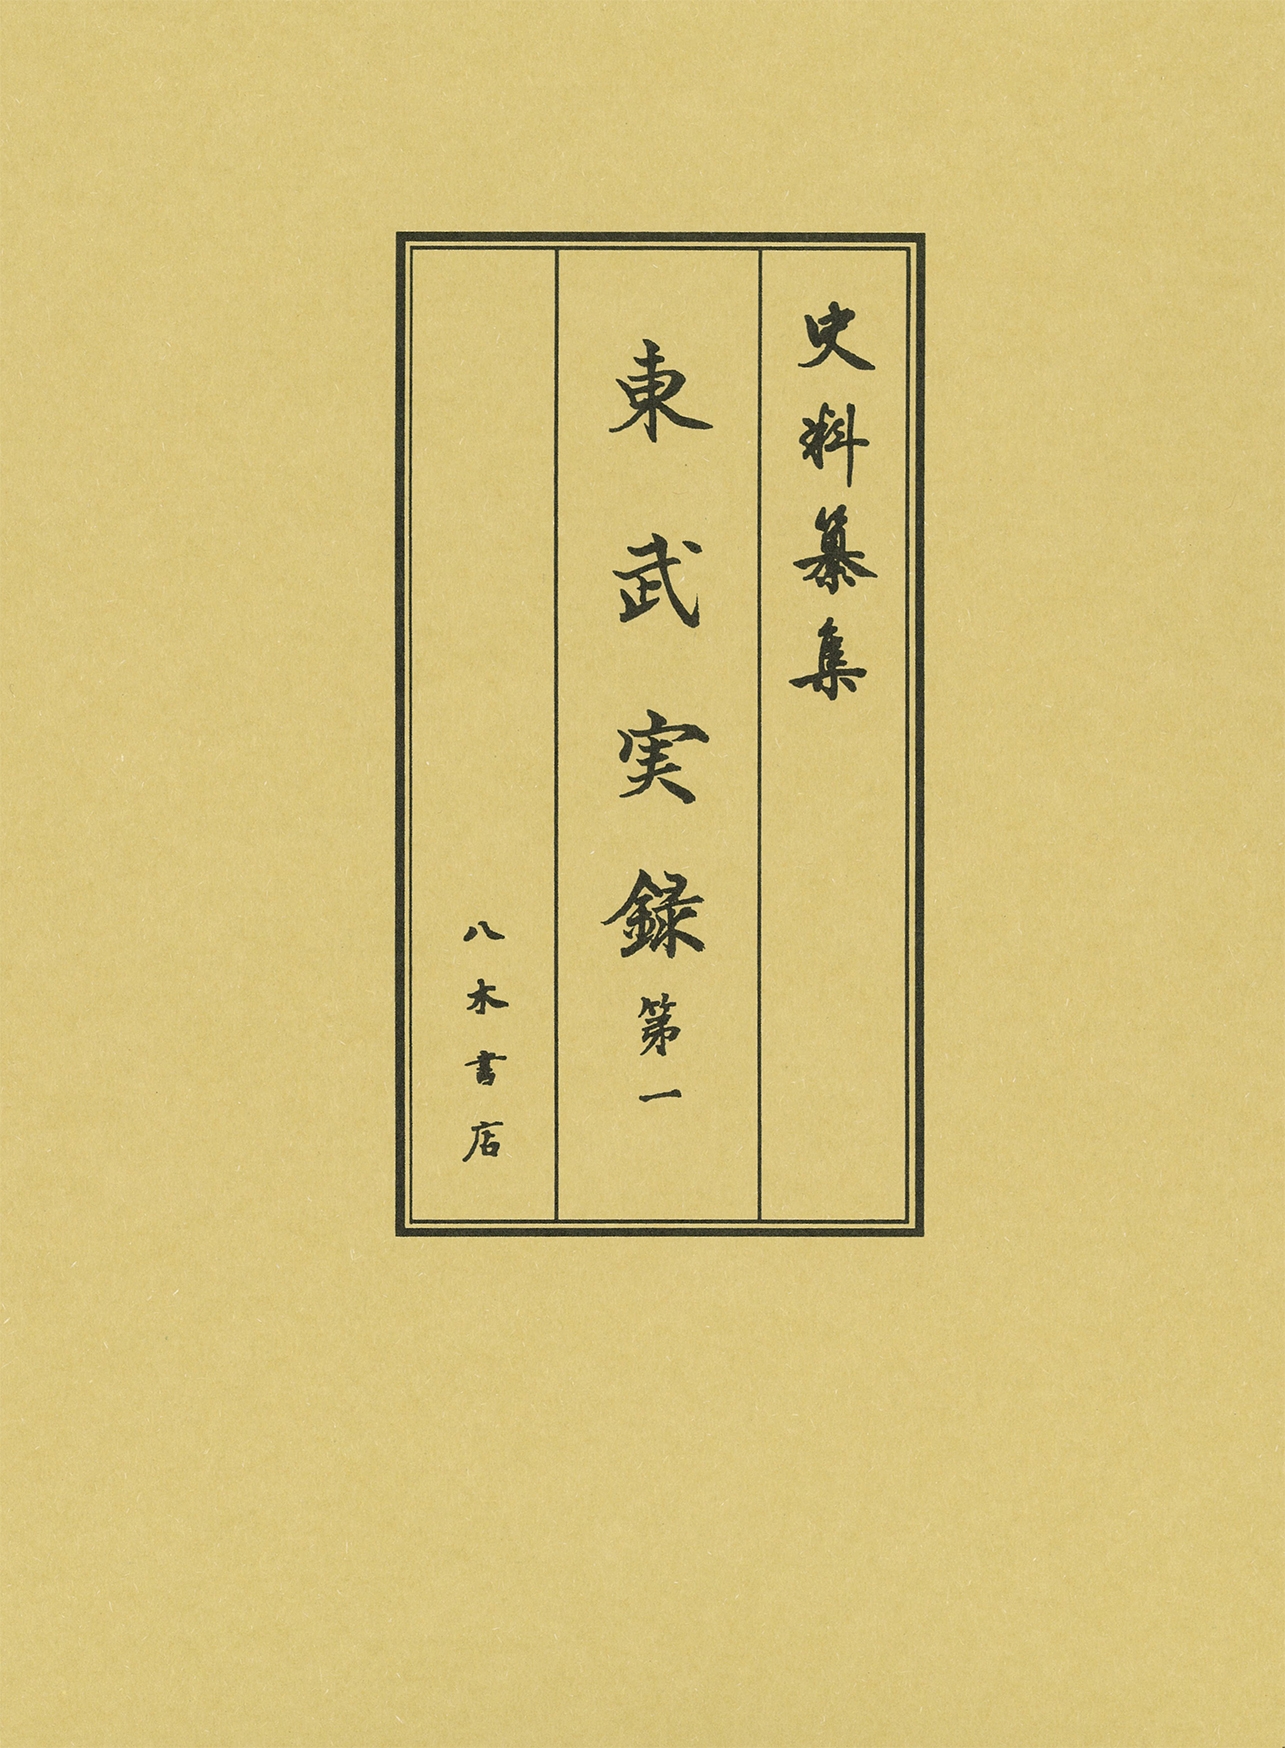 史料纂集
東武実録第一
八木書店